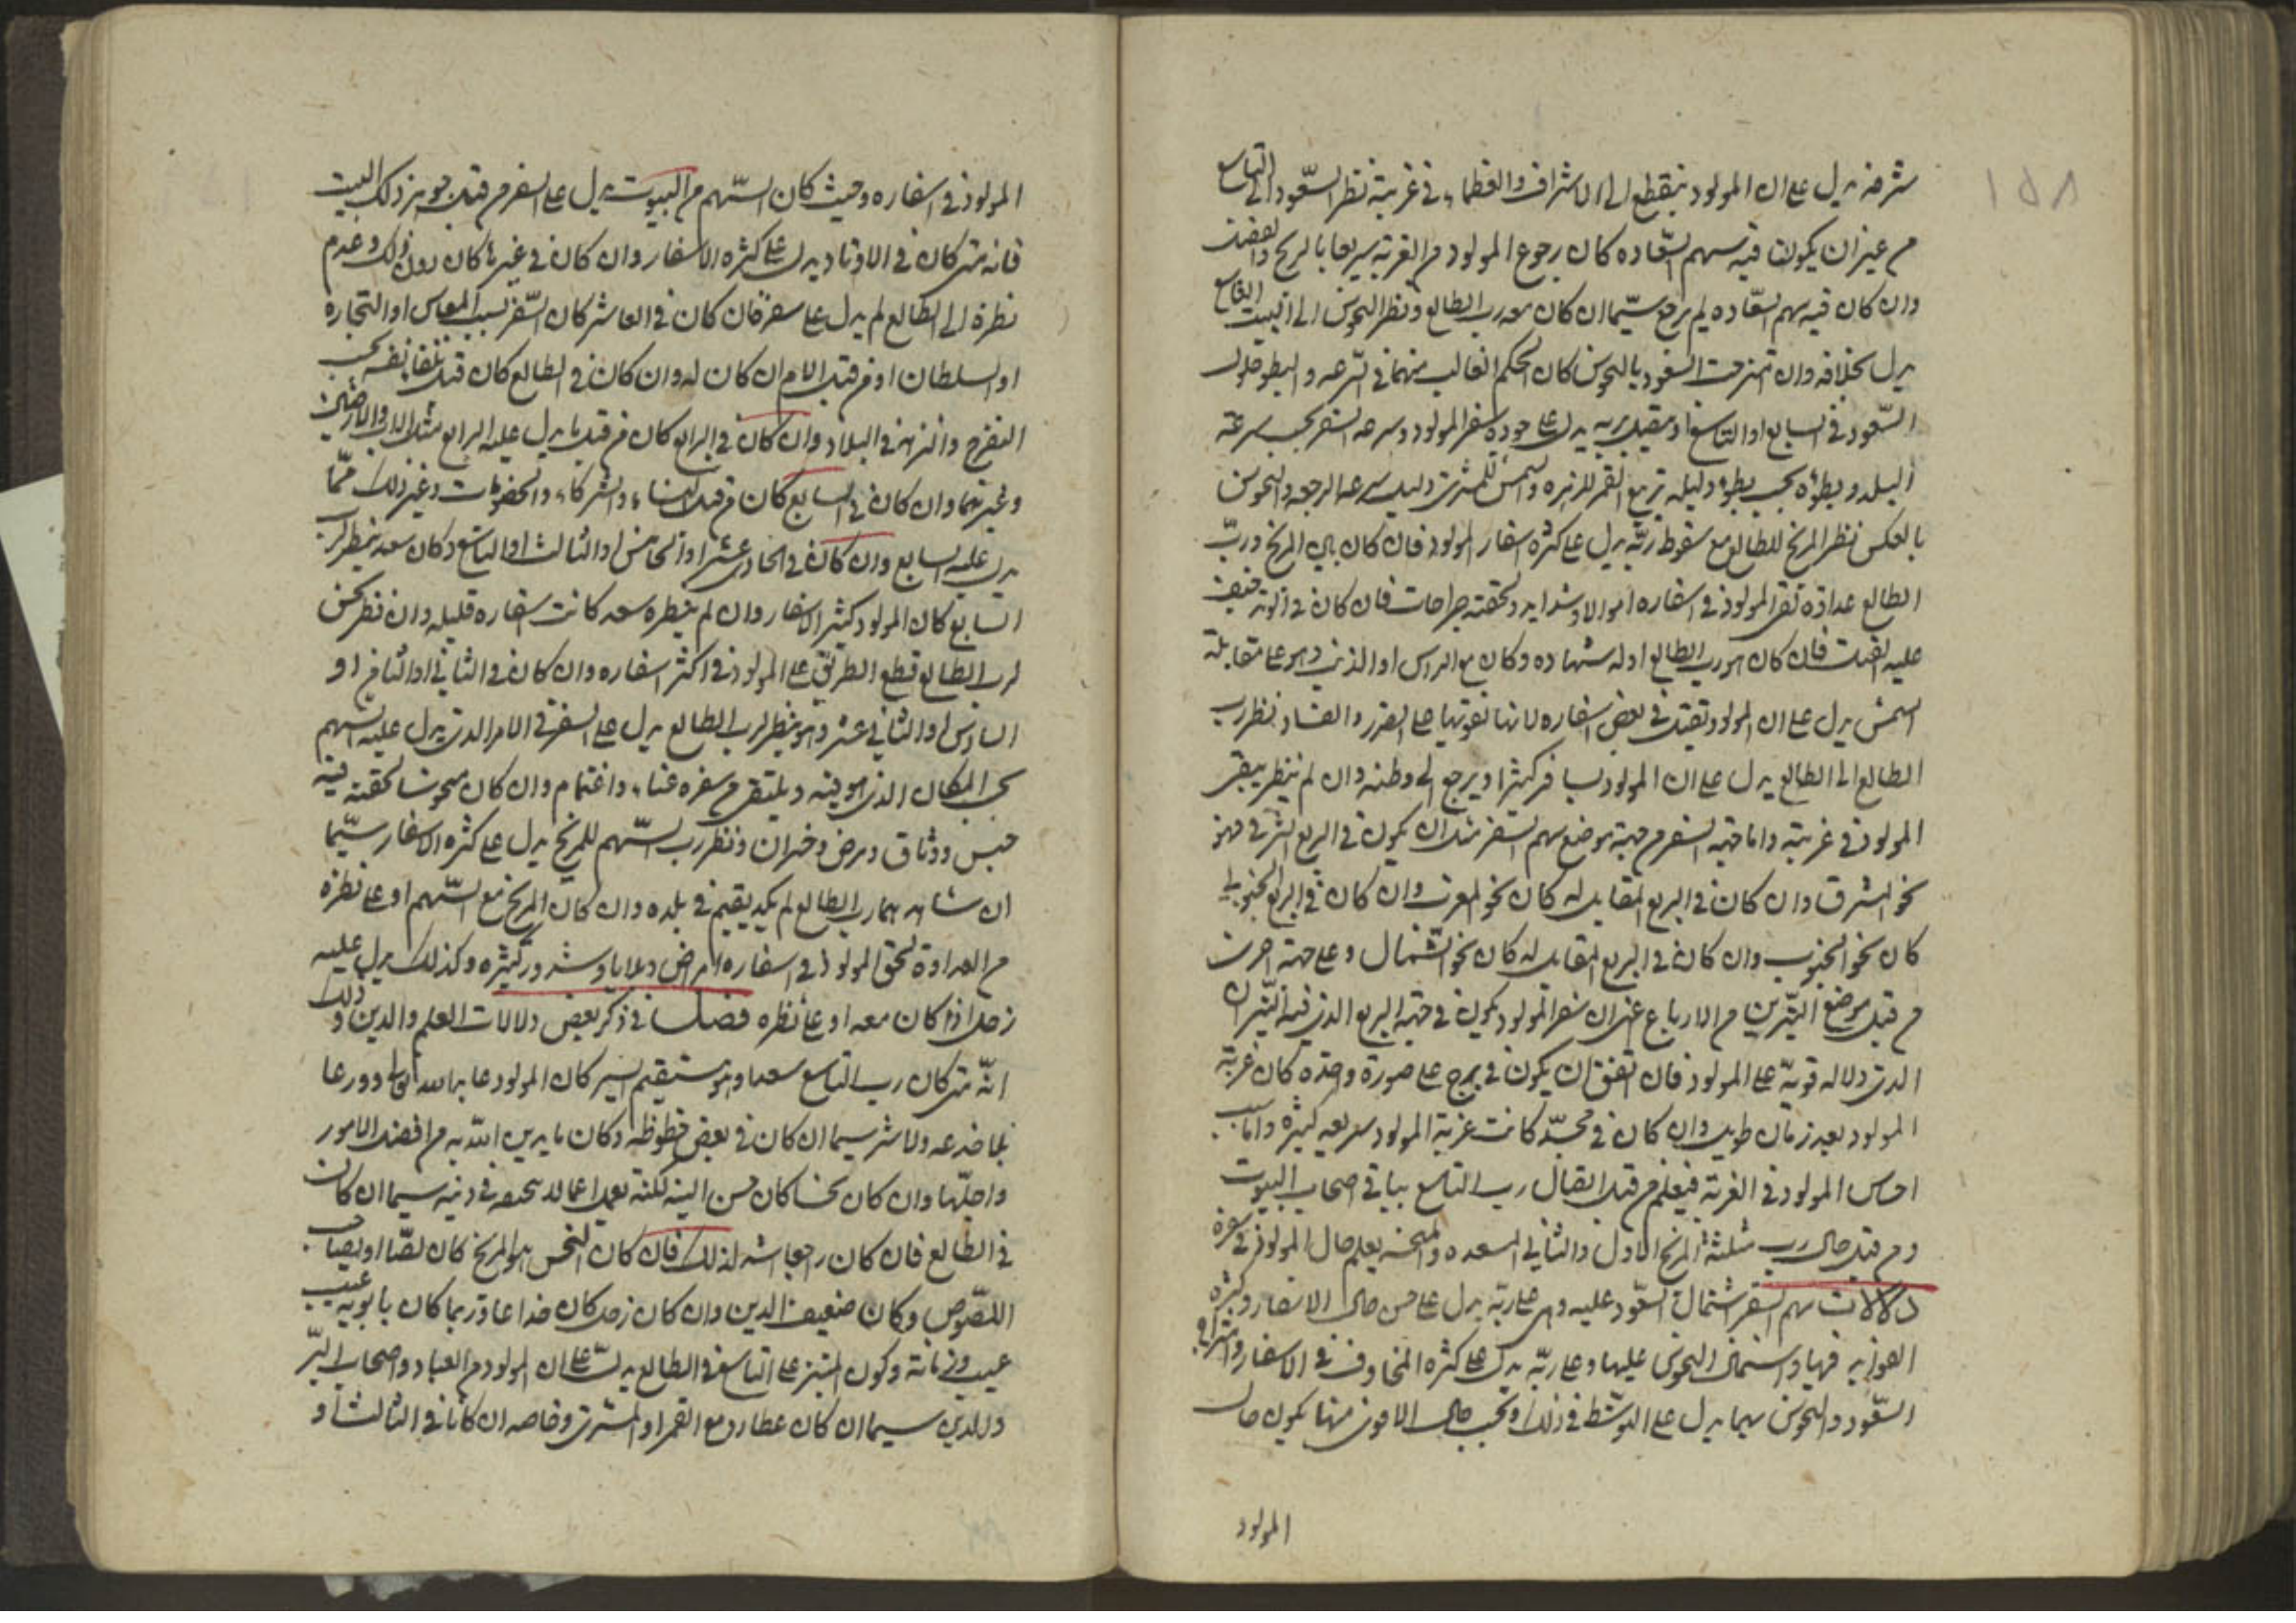 ١٥٨
شرفه يدل على ان المولود ينقطع الى الاشراف والعظماء في غربته نظر السعود الى التاسع
من غير ان يكون فيه سهم السعاده كان رجوع المولود من الغربة سريعا بالربح والفضل
وان كان فيه سهم السعاده لم يرجع سيما ان كان معه رب الطالع ونظر النحوس الى البيت التاسع
يدل بخلافه وان تمزجت السعود بالنحوس كان الحكم الغالب منهما في السرعه والبطو حلول
السعود في السابع او التاسع او مقبل بربه يدل على جودة سفر المولود وسرعه السفر بحسب سرعته
البلد وبطؤه بحسب بطؤه وليله تربيع القمر للزهره والشمس للمشتري دليل سرعه الرجعه والنحوس
بالعكس نظر المريخ للطالع مع سقوط ربه يدل على كثرة اسفار المولود فان كان بين المريخ ورب
الطالع عداوة لقى المولود في اسفاره اهوالا وشدايد ولحقته جراحات فان كان في الوتد خيف
عليه القتل فان كان هو رب الطالع او له شهاده وكان مع الراس او الذنب وهو على مقابلة
الشمس يدل على ان المولود يقتل في بعض اسفاره لانها تقويها على الضرر والفساد نظر رب
الطالع الى الطالع يدل على ان المولود يسافر كثيرا ويرجع الى وطنه وان لم ينظر يبقى
المولود في غربته واما جهة السفر من جهة موضع سهم السفر مثل ان يكون في الربع الشرقي فهو
نحو المشرق وان كان في الربع المقابل له كان نحو المغرب وان كان في الربع الجنوبي
كان نحو الجنوب وان كان في الربع المقابل له كان نحو الشمال وعلى جهة اخرى
من قبل موضع النيرين من الارباع عنى ان سفر المولود يكون في جهة الربع الذي فيه النيران
الذي دلاله قوية على المولود فان اتفق ان يكون في برج على صورة واحده كان غربة
المولود بعد زمان طويل وان كان في مجسد كانت غربة المولود سريعه كثيره واما
احساس المولود في الغربة فيعلم من قبل اتصال رب التاسع بباقي اصحاب البيوت
ومن قبل حال رب مثلثة المريخ الاول والثاني المسعده والمنحسه يعلم حال المولود في سفره
دلالات سهم السفر اشتمال السعود عليه وهي على ربه يدل على حسن حال الاسفار وكثرة
الفوايد فيها واشتمال النحوس عليها وعلى ربه يدل على كثرة المخاوف في الاسفار واشتراك
السعود والنحوس بهما يدل على التوسط في ذلك وبحسب حال الاقوى منهما يكون حال
المولود
المولود في اسفاره وحيث كان السهم من البيوت يدل على السفر من قبل جوهر ذلك البيت
فانه متى كان في الاوتاد يدل على كثرة الاسفار وان كان في غيرها كان دون ذلك وعدم
نظره الى الطالع لم يدل على سفر فان كان في العاشر كان السفر بسبب المعاش او التجاره
او السلطان او من قبل الام ان كان له وان كان في الطالع كان من تلقاء نفسه بحسب
التفرج والتنزه في البلاد وان كان في الرابع كان من قبل ما يدل عليه الرابع مثل الاب والارضين
وغيرهما وان كان في السابع كان من قبل النساء والشركاء والخصومات وغير ذلك مما
يدل عليه السابع وان كان في الحادي عشر او الخامس او الثالث او التاسع وكان سعد ينظر لرب
السابع كان المولود كثير الاسفار وان لم ينظره سعد كانت اسفاره قليله وان نظر نحس
لرب الطالع قطع الطريق على المولود في اكثر اسفاره وان كان في الثاني او الثامن او
السادس او الثاني عشر وهو ينظر لرب الطالع يدل على السفر في الامر الذي يدل عليه السهم
بحسب المكان الذي هو فيه ويلتقى من سفره عناء واغتمام وان كان منحوسا لحقته فيه
حبس ووثاق ومرض وخسران ونظر رب السهم للمريخ يدل على كثرة الاسفار سيما
ان شاهدهما رب الطالع لم يكد يقيم في بلده وان كان المريخ مع السهم او على نظره
من العداوة لحق المولود في اسفاره امراض وبلايا وشرور كثيره وكذلك يدل عليه
زحل اذا كان معه او على نظره فصل في ذكر بعض دلالات العلم والدين وذلك
انه متى كان رب التاسع سعدا وهو مستقيم السير كان المولود عابدا لله تعالى وورعا
لما ضد عه ولا شر سيما ان كان في بعض حظوظه وكان ما يدين الله به من افضل الامور
واجلها وان كان نحسا كان حسن النيه لكنه يعمل اعمالا سخيفه في دينه سيما ان كان
في الطالع فان كان راجعا اشد لذلك فان كان النحس هو المريخ كان لصا او يصاحب
اللصوص وكان ضعيف الدين وان كان زحل كان خداعا وربما كان بابويه عيب
عيب وزمانة وكون المبتز على التاسع في الطالع يدل على ان المولود من العباد واصحاب البر
والدين سيما ان كان عطارد مع القمر او المشتري وخاصه ان كانا في الثالث او